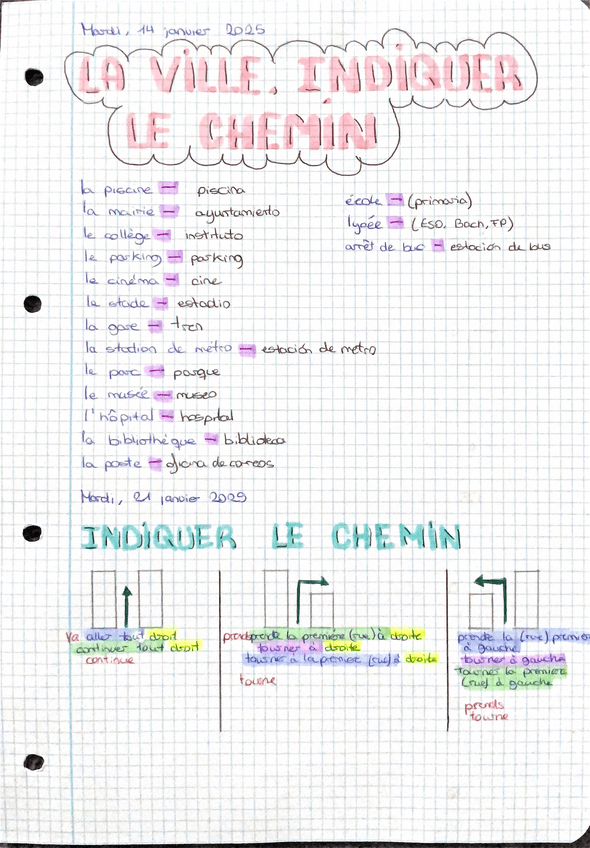 Mardi, 14 janvier 2025
LA VILLE. INDIQUER
LE CHEMIN
la piscine - piscina
la mairie - ayuntamiento
le collège - instituto
le parking - parking
le cinéma - cine
le stade - estadio
la gare - tren
la station de métro - estación de metro
le parc - parque
le musée - museo
l'hôpital - hospital
la bibliothéque - biblioteca
la poste - oficina de correos
école - (primaria)
lycée - (ESO, Bach, FP)
arrêt de bus - estación de bus
Mardi, 21 janvier 2025
INDIQUER LE CHEMIN
Va aller tout droit
continuer tout droit
continue
prends prende la première (rue) à droite
tourner à droite
tourner à la premier (rue) à droite
tourne
prende la (rue) premier
à gauche
tourner à gauche
tourner la premier
(rue) à gauche
prends
tourne